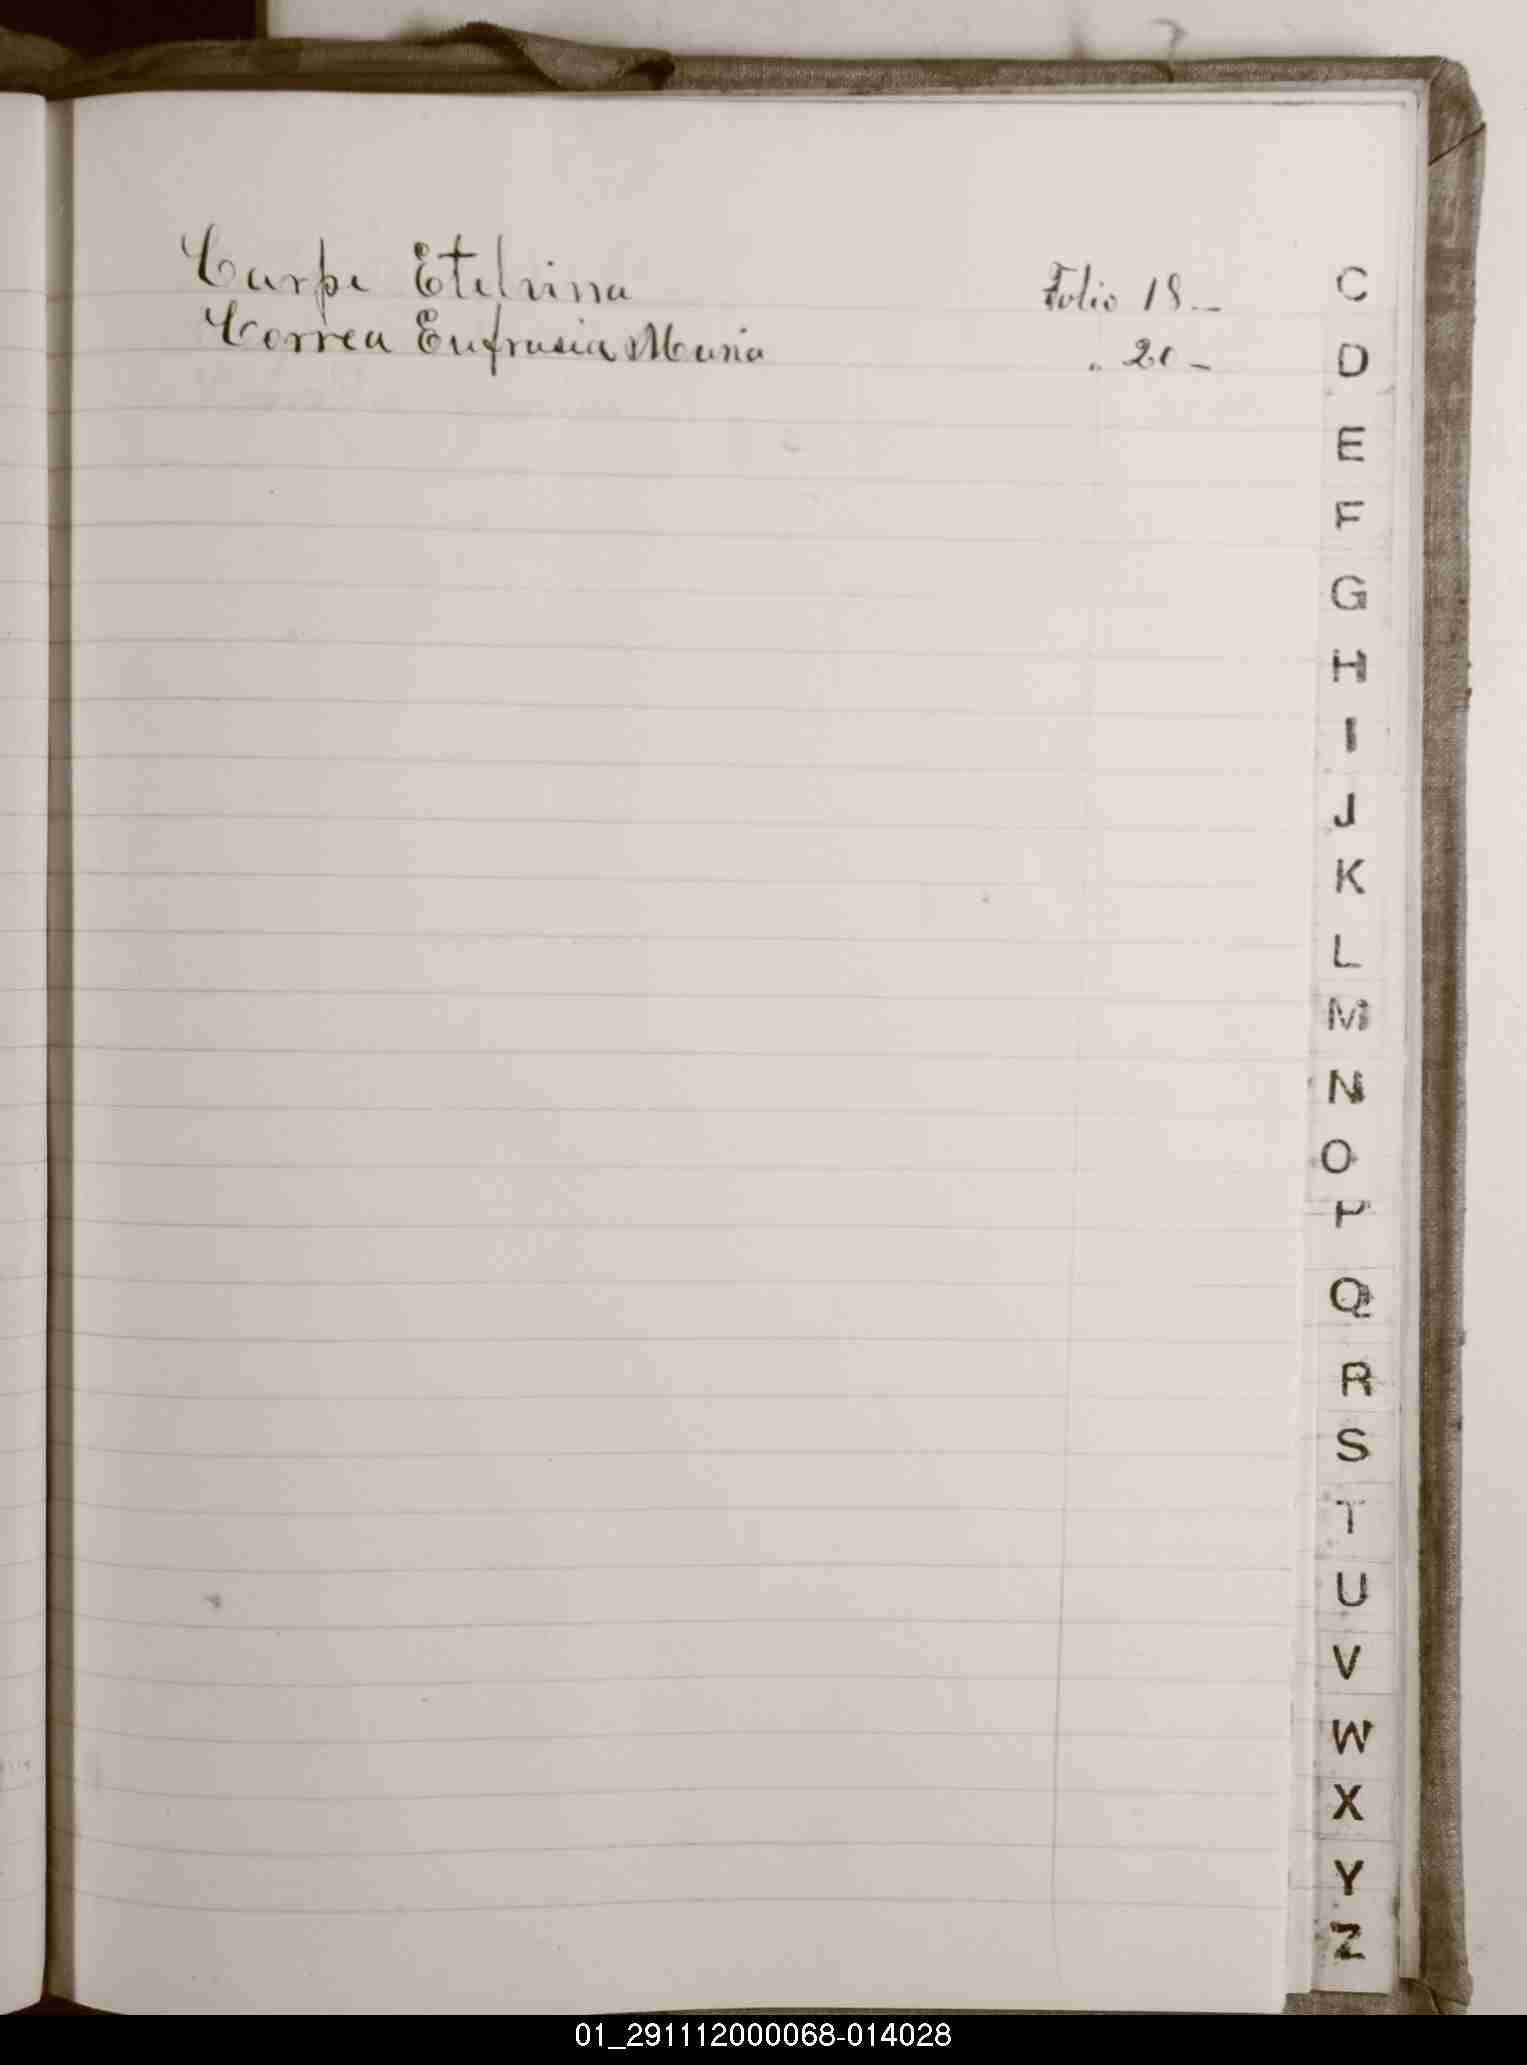 Carpe Etelvina Folio 18.-
Correa Eufrasia Maria " 20 -
C
D
E
F
G
H
I
J
K
L
M
N
O
P
Q
R
S
T
U
V
W
X
Y
Z
01_291112000068-014028